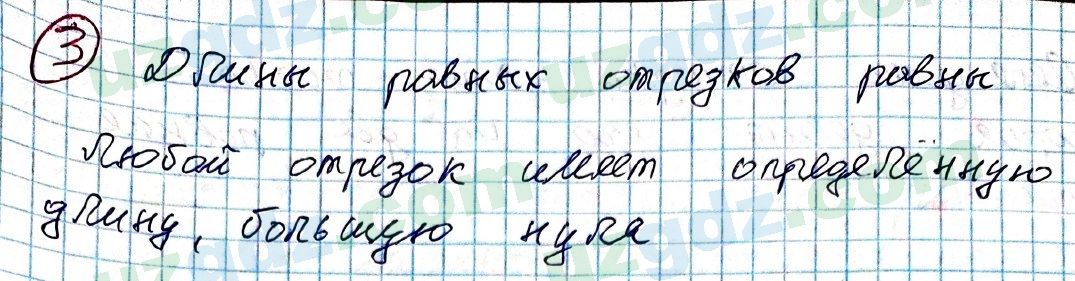 3 Длины равных отрезков равны
Любой отрезок имеет определённую
длину, большую нуля